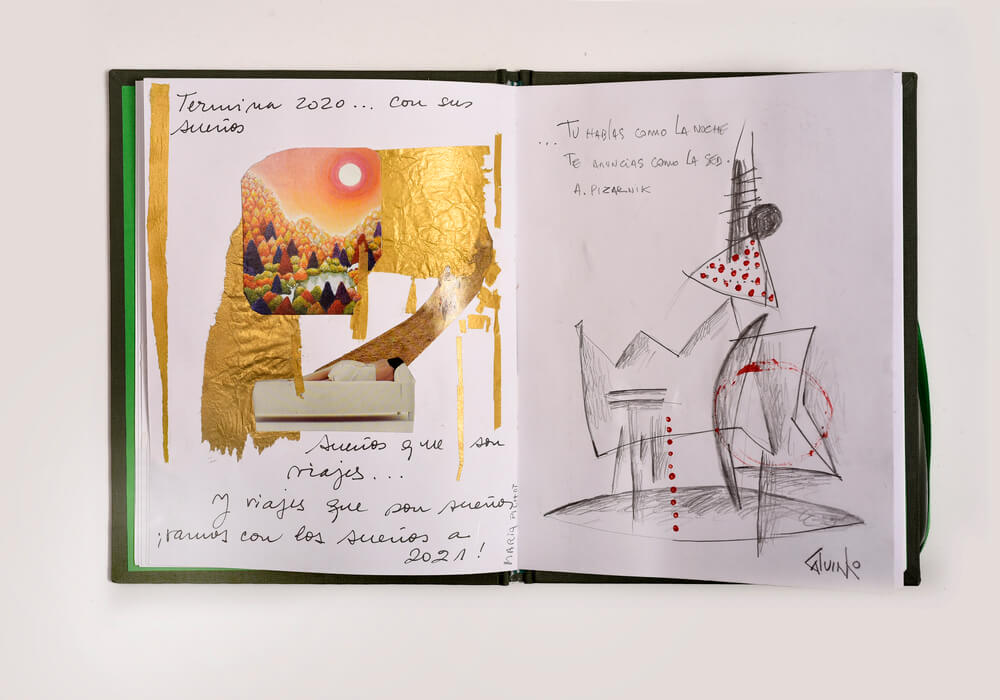 Termina 2020... con sus
sueños
sueños que son
viajes...
Y viajes que son sueños
¡vamos con los sueños a
2021!
MARIA
... TU HABLAS COMO LA NOCHE
TE ANUNCIAS COMO LA SED.
A. PIZARNIK